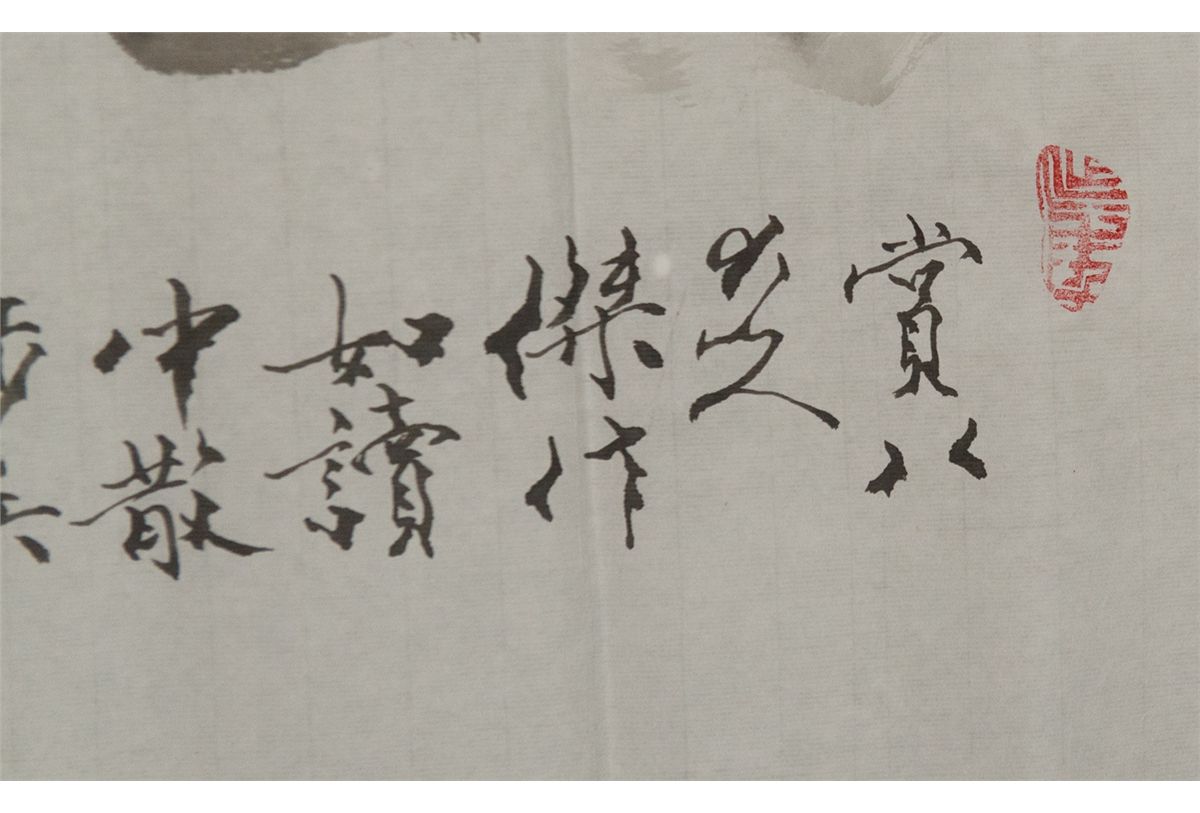 賞八
大山人
傑作
如讀
中散